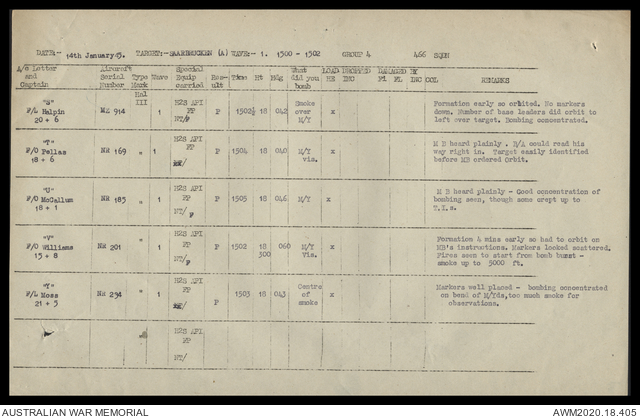 DATE:- 14th January 45. TARGET:- SAARBRUCKEN (A) WAVE:- 1. 1500 - 1502 GROUP 4 466 SQDN
A/c Letter and Captain Aircraft Serial Number Type Mark Wave Special Equip carried Result Time Ht Hdg What did you bomb LOAD HE DROPPED INC DAMAGED BY Fl FL INC COL REMARKS
Hal III
"S" F/L Halpin 20 + 6 914 1 H2S API FP P 1502½ 18 042 Smoke over M/Y x
Formation early so orbited. No markers
down. Number of base leaders did orbit to
left over target. Bombing concentrated.
"T" F/O Fellas 18 + 6 NR 169 " 1 H2S API FP P 1504 18 040 M/Y vis. x
M B heard plainly. B/A could read his
way right in. Target easily identified
before MB ordered Orbit.
"U" F/O McCallum 18 + 1 NR 185 " 1 H2S API FP NT/ P 1505 18 046 M/Y x
M B heard plainly - Good concentration of
bombing seen, though some crept up to
T.I.s.
"V" F/O Williams 15 + 8 NR 201 " 1 H2S API FP NT/ P 1502 18 300 060 M/Y Vis. x
Formation 4 mins early so had to orbit on
MB's instructions. Markers looked scattered.
Fires seen to start from bomb burst -
smoke up to 5000 ft.
"Y" F/L Moss 21 + 5 NR 234 " 1 H2S API FP P 1503 18 043 Centre of smoke x
Markers well placed - bombing concentrated
on bend of M/Yds, too much smoke for
observations.
H2S API
FP
NT/
AUSTRALIAN WAR MEMORIAL AWM2020.18.405